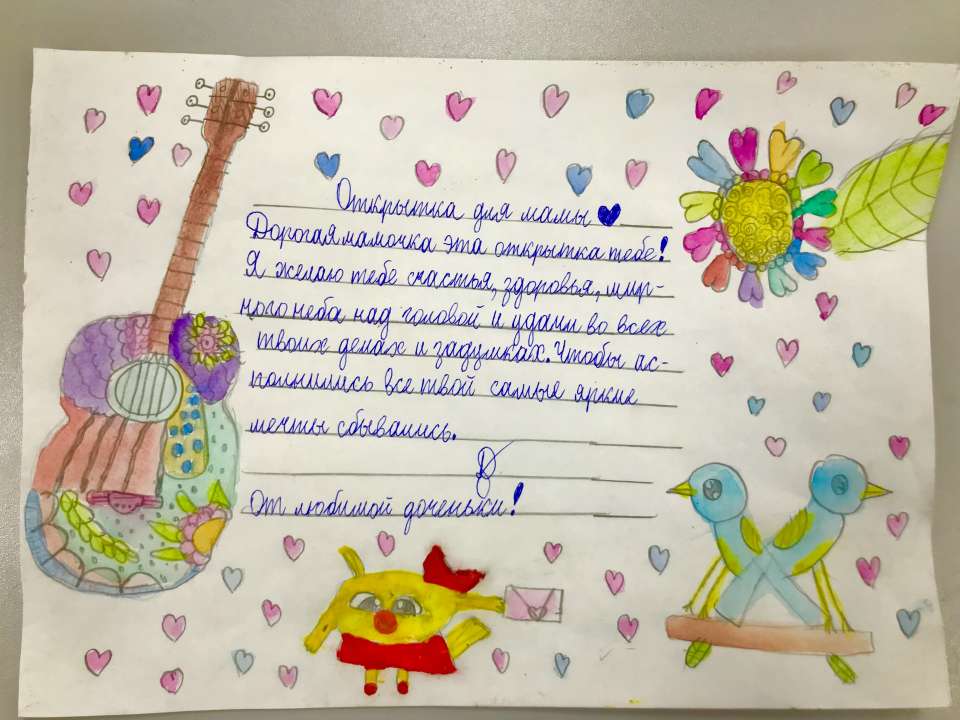 Открытка для мамы
Дорогая мамочка эта открытка тебе!
Я желаю тебе счастья, здоровья, мир-
ного неба над головой и удачи во всех
твоих делах и задумках. Чтобы ас-
полнились все твой самые яркие
мечты сбывались.
От любимой доченьки!